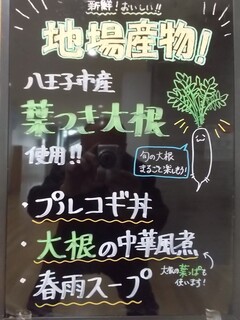 新鮮!おいしい!!
地場産物!
八王子市産
葉つき大根
使用!!
旬の大根
まるごと楽しもう!
・プルコギ丼
・大根の中華風煮
大根の葉っぱも
使います!
・春雨スープ